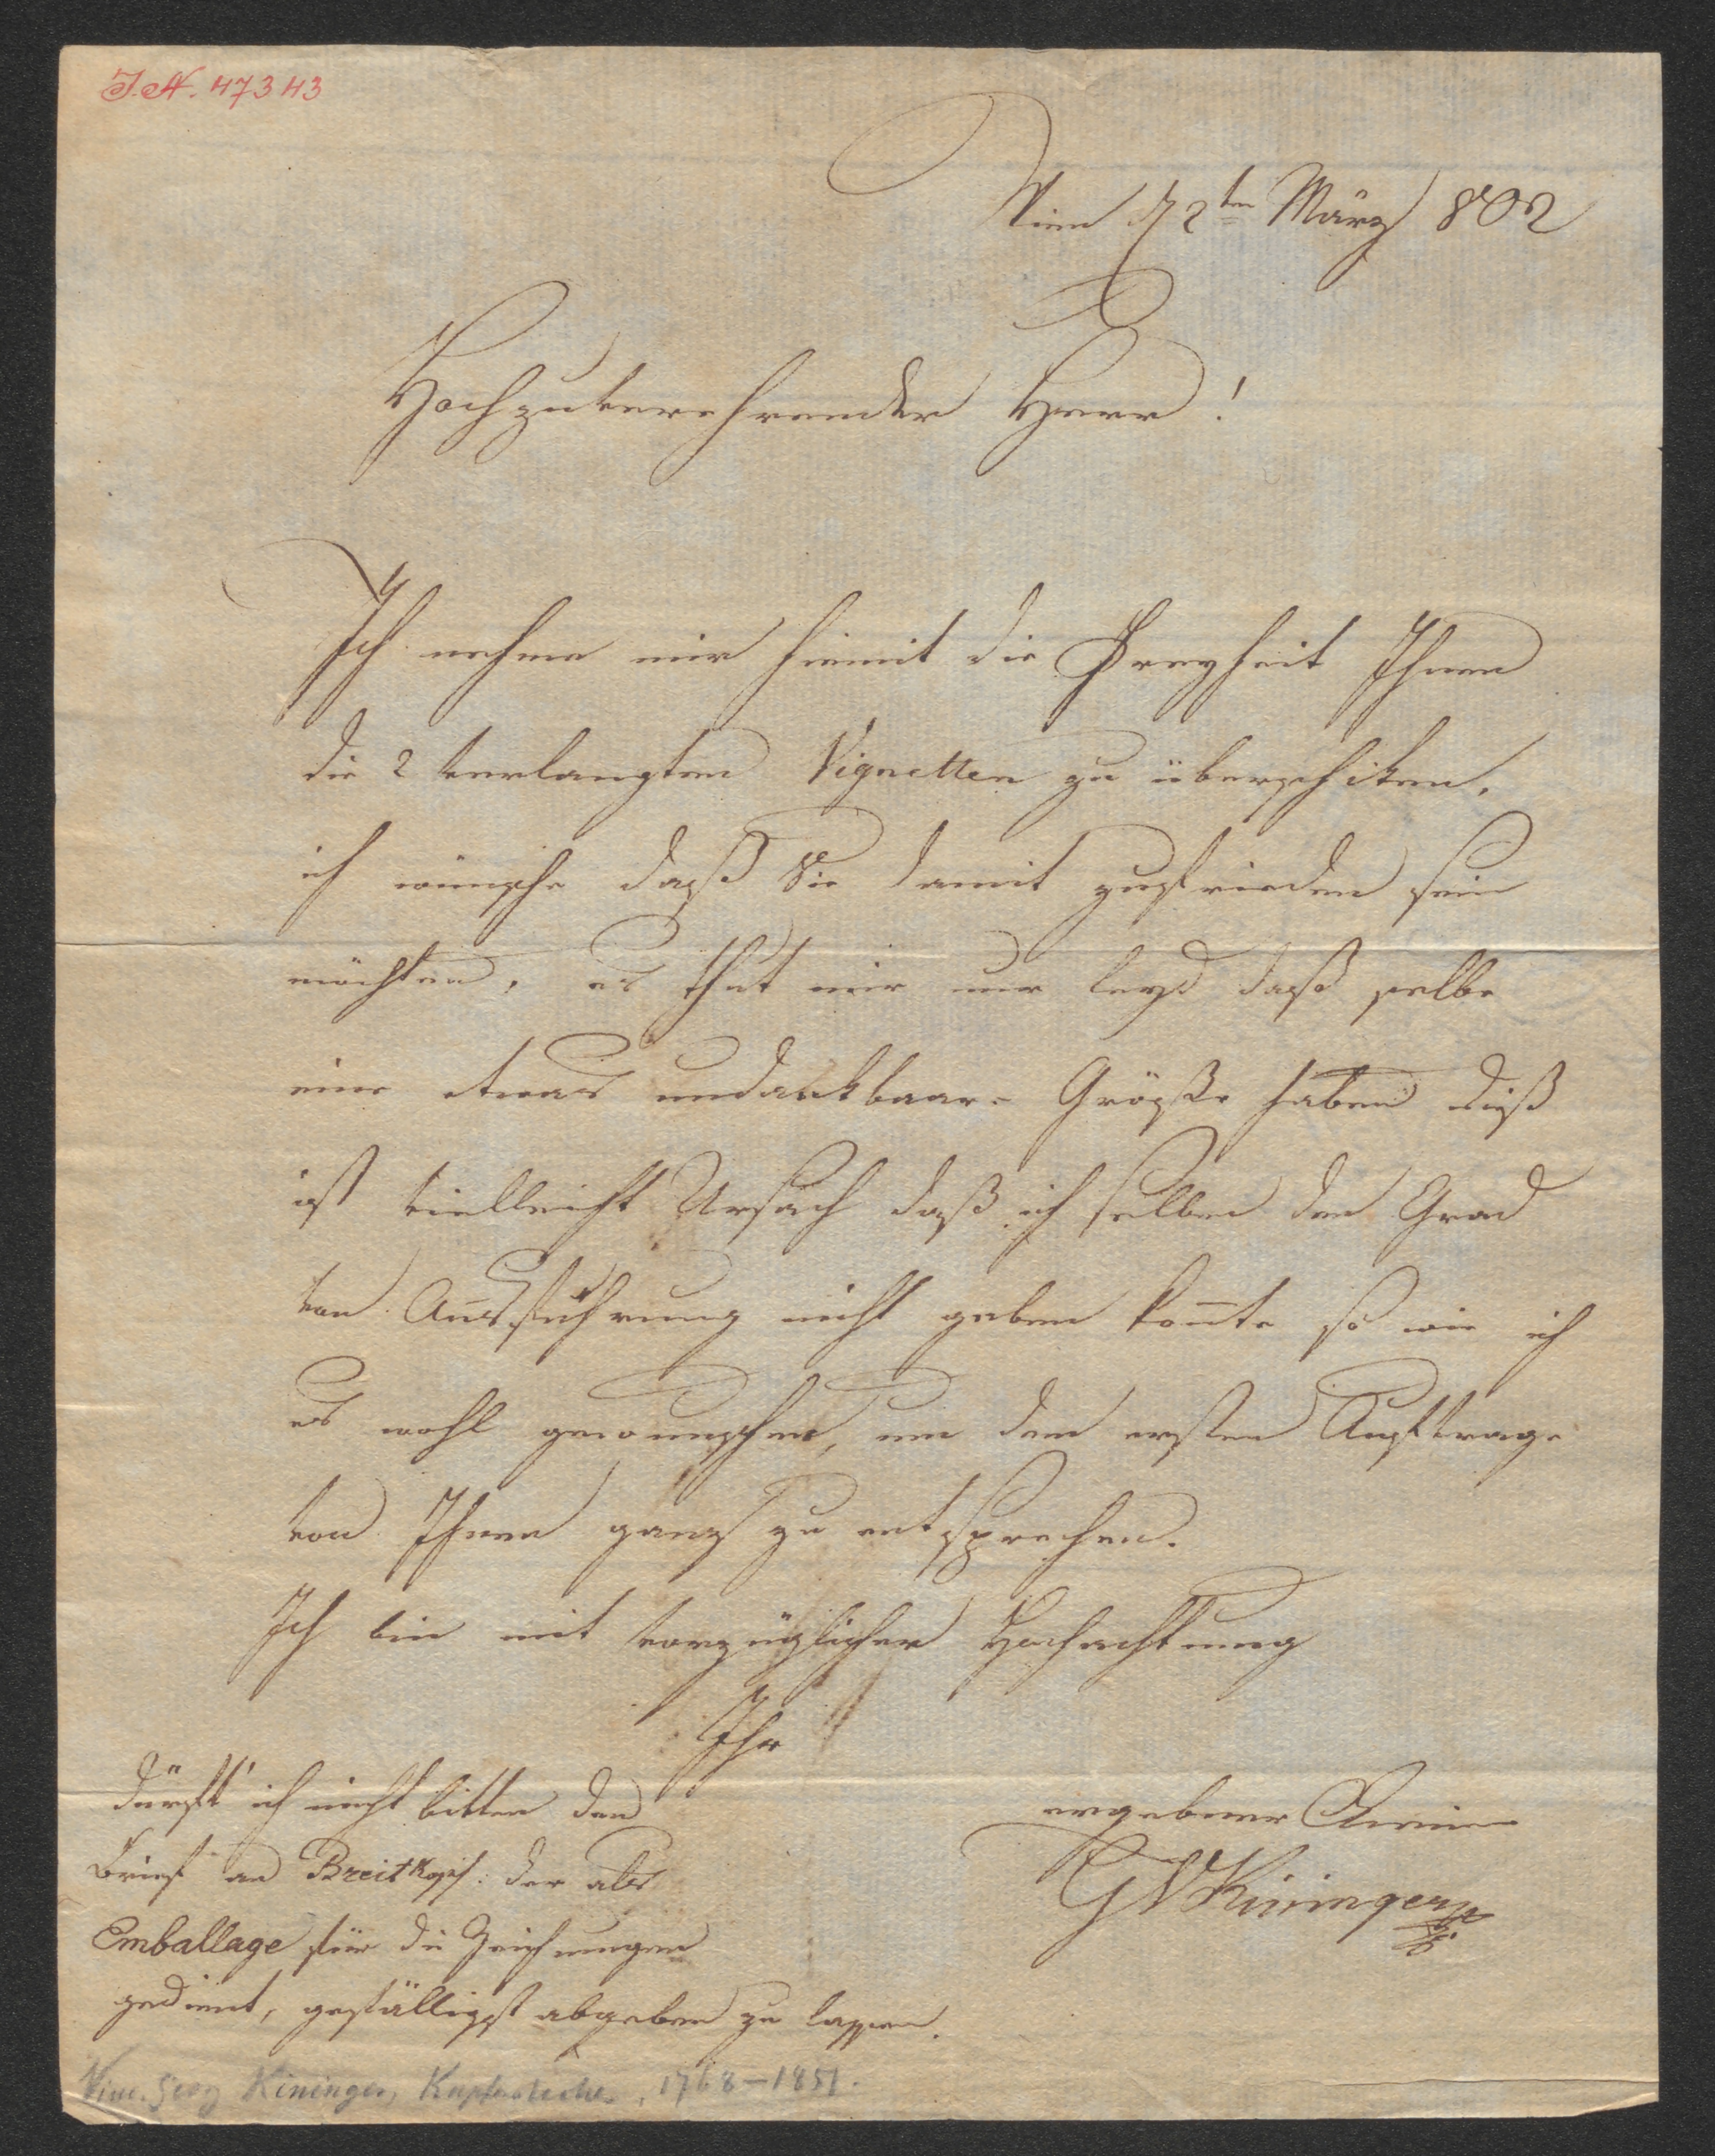 J.N. 47343
Wien d 2ten März 802
Hochzuverehrender Herr!
Ich nehme mir hiemit die Freyheit Ihnen
die 2 verlangten Vignetten zu überschiken,
ich wünsche daß Sie damit zufrieden sein
möchten, es thut mir nur leyd daß selbe
eine etwas undankbaare Größe haben dieß
ist vielleicht Ursach daß ich selben den Grad
von Ausführung nicht geben konnte so wie ich
es wohl gewunschen, um dem ersten Auftrage
von Ihnen ganz zu entsprechen.
Ich bin mit vorzüglicher Hochachtung
Ihr
ergebener
GVKininger
Dürft' ich nicht bitten den
Brief an Breitkopf: der als
Emballage für die Zeichnungen
gedient, gefälligst abgeben zu lassen.
Vinc. Georg Kininger, Kupferstecher, 1768–1851.